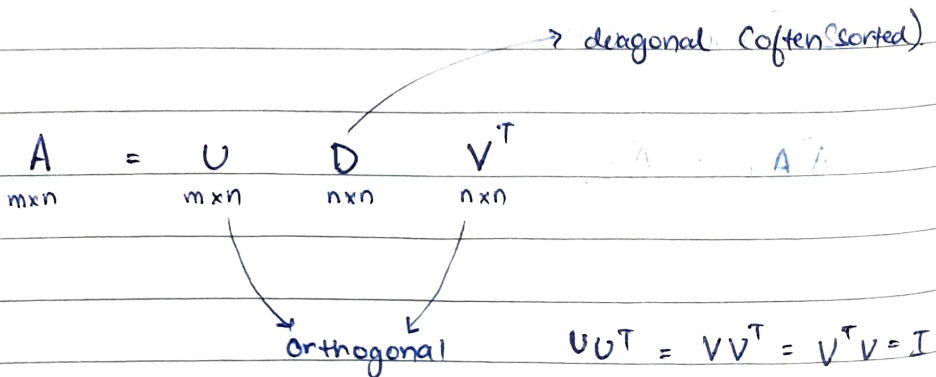 → deagonal (often sorted)
A = U D Vᵀ
m×n m×n n×n n×n
orthogonal UUᵀ = VVᵀ = VᵀV = I